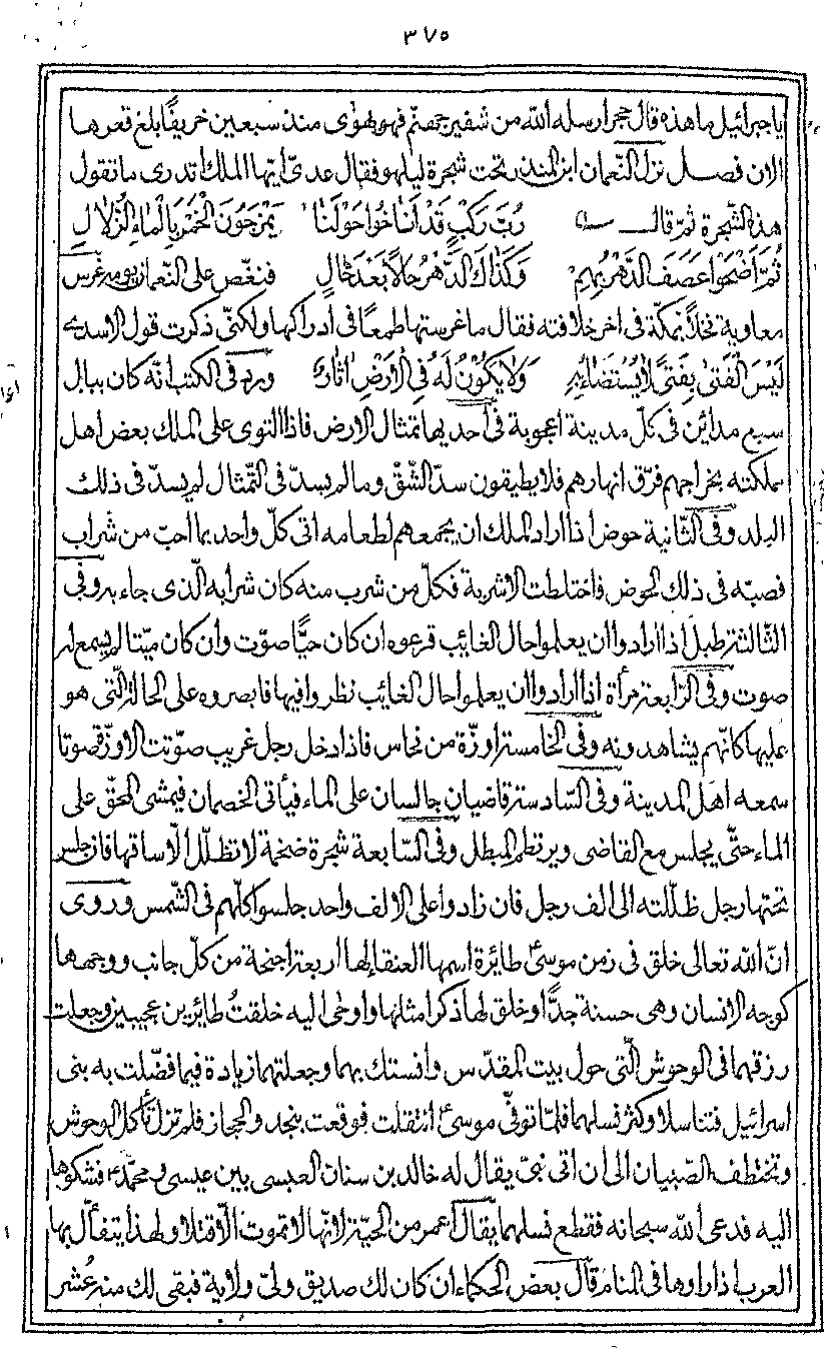 ٣٧٥
ياجبرائيل ما هذه قال حجر ارسله الله من شفير جهنّم فهو يهوى منذ سبعين خريفًا بلغ قعرها
الان فصل نزل النّعمان ابن المنذر تحت شجرة ليلهو فقال عدىّ ايّها الملك اتدرى ما تقول
هذه الشّجرة ثمّ قال رُبّ رَكْبٍ قَدْ اَناخُوا حَوْلَنا يَمْزِجُونَ الْخَمْرَ بِالْماءِ الزُّلالِ
ثُمَّ اَضْحَوْا عَصَفَ الدَّهْرُ بِهِمْ وَكَذاكَ الدَّهْرُ حالًا بَعْدَ حالِ فنغّص على النّعمان يومه غرس
معاوية نخلًا بمكّة فى اخر خلافته فقال ما غرستها طمعًا فى ادراكها ولكنّى ذكرت قول الاسدى
لَيْسَ الْفَتى بِفَتًى لا يُسْتَضاءُ بِهِ وَلا يَكُونُ لَهُ فِى الْاَرْضِ اٰثارُ ورد فى الكتب انّه كان ببابل
سبع مدائن فى كلّ مدينة اعجوبة فى احديها تمثال الارض فاذا التوى على الملك بعض اهل
مملكته بخراجهم فرّق انهارهم فلا يطيقون سدّ الشّقّ وما لم يسدّ فى التّمثال لم يسدّ فى ذلك
البلد وفى الثّانية حوض اذا اراد الملك ان يجمعهم لطعامه اتى كلّ واحد بما احبّ من شراب
فصبّه فى ذلك الحوض فاختلطت الاشربة فكلّ من شرب منه كان شرابه الّذى جاء به وفى
الثّالثة طبل اذا ارادوا ان يعلموا حال الغايب قرعوه ان كان حيًّا صوّت وان كان ميّتا لم يسمع له
صوت وفى الرّابعة مرأة اذا ارادوا ان يعلموا حال الغايب نظروا فيها فابصروه على الحالة الّتى هو
عليها كانّهم يشاهدونه وفى الخامسة اوزّة من نحاس فاذا دخل رجل غريب صوّتت الاوزّة صوتا
سمعه اهل المدينة وفى السّادسة قاضيان جالسان على الماء فيأتى الخصمان فيمشى المحقّ على
الماء حتّى يجلس مع القاضى ويرتطم المبطل وفى السّابعة شجرة ضخمة لا تظلّل الّا ساقها فان جلس
تحتها رجل ظلّلته الى الف رجل فان زادوا على الالف واحد جلسوا كلّهم فى الشّمس وروى
انّ الله تعالى خلق فى زمن موسىؑ طائرة اسمها العنقا لها اربعة اجنحة من كلّ جانب ووجهها
كوجه الانسان وهى حسنة جدًّا وخلق لها ذكرا مثلها واوحى اليه خلقتُ طائرين عجيبين وجعلت
رزقهما فى الوحوش الّتى حول بيت المقدّس وانستك بهما وجعلتهما زيادة فيما فضّلت به بنى
اسرائيل فتناسلا وكثر نسلهما فلمّا توفّى موسىؑ انتقلت فوقعت بنجد والحجاز فلم تزل تأكل الوحوش
وتختطف الصّبيان الى ان اتى نبىّ يقال له خالد بن سنان العبسى بين عيسى ومحمّد فشكوها
اليه فدعى الله سبحانه فقطع نسلهما يقال اعمر من الحيّة لانّها لا تموت الّا قتلا ولهذا يتفأّل بها
العرب اذا راوها فى المنام قال بعض الحكماء ان كان لك صديق ولىّ ولاية فبقى لك منه عُشر